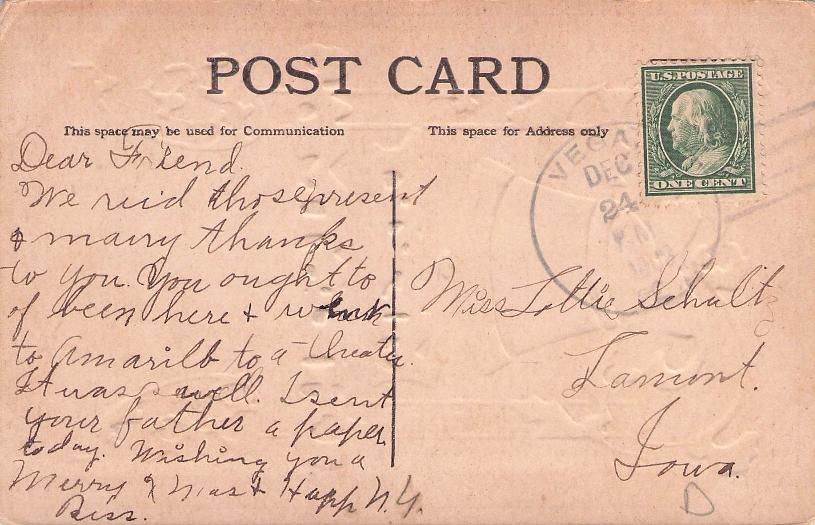 POST CARD
U.S. POSTAGE
ONE CENT
This space may be used for Communication
This space for Address only
VEGA
DEC
24
Dear Friend.
We recid those present
& many thanks
to you. You ought to
of been here & went
to Amarillo to a Theater.
It was swell. I sent
your father a paper
today. Wishing you a
Merry Xmas & Happ N.Y.
Bess.
Miss Lottie Schultz
Lamont.
Iowa.
D